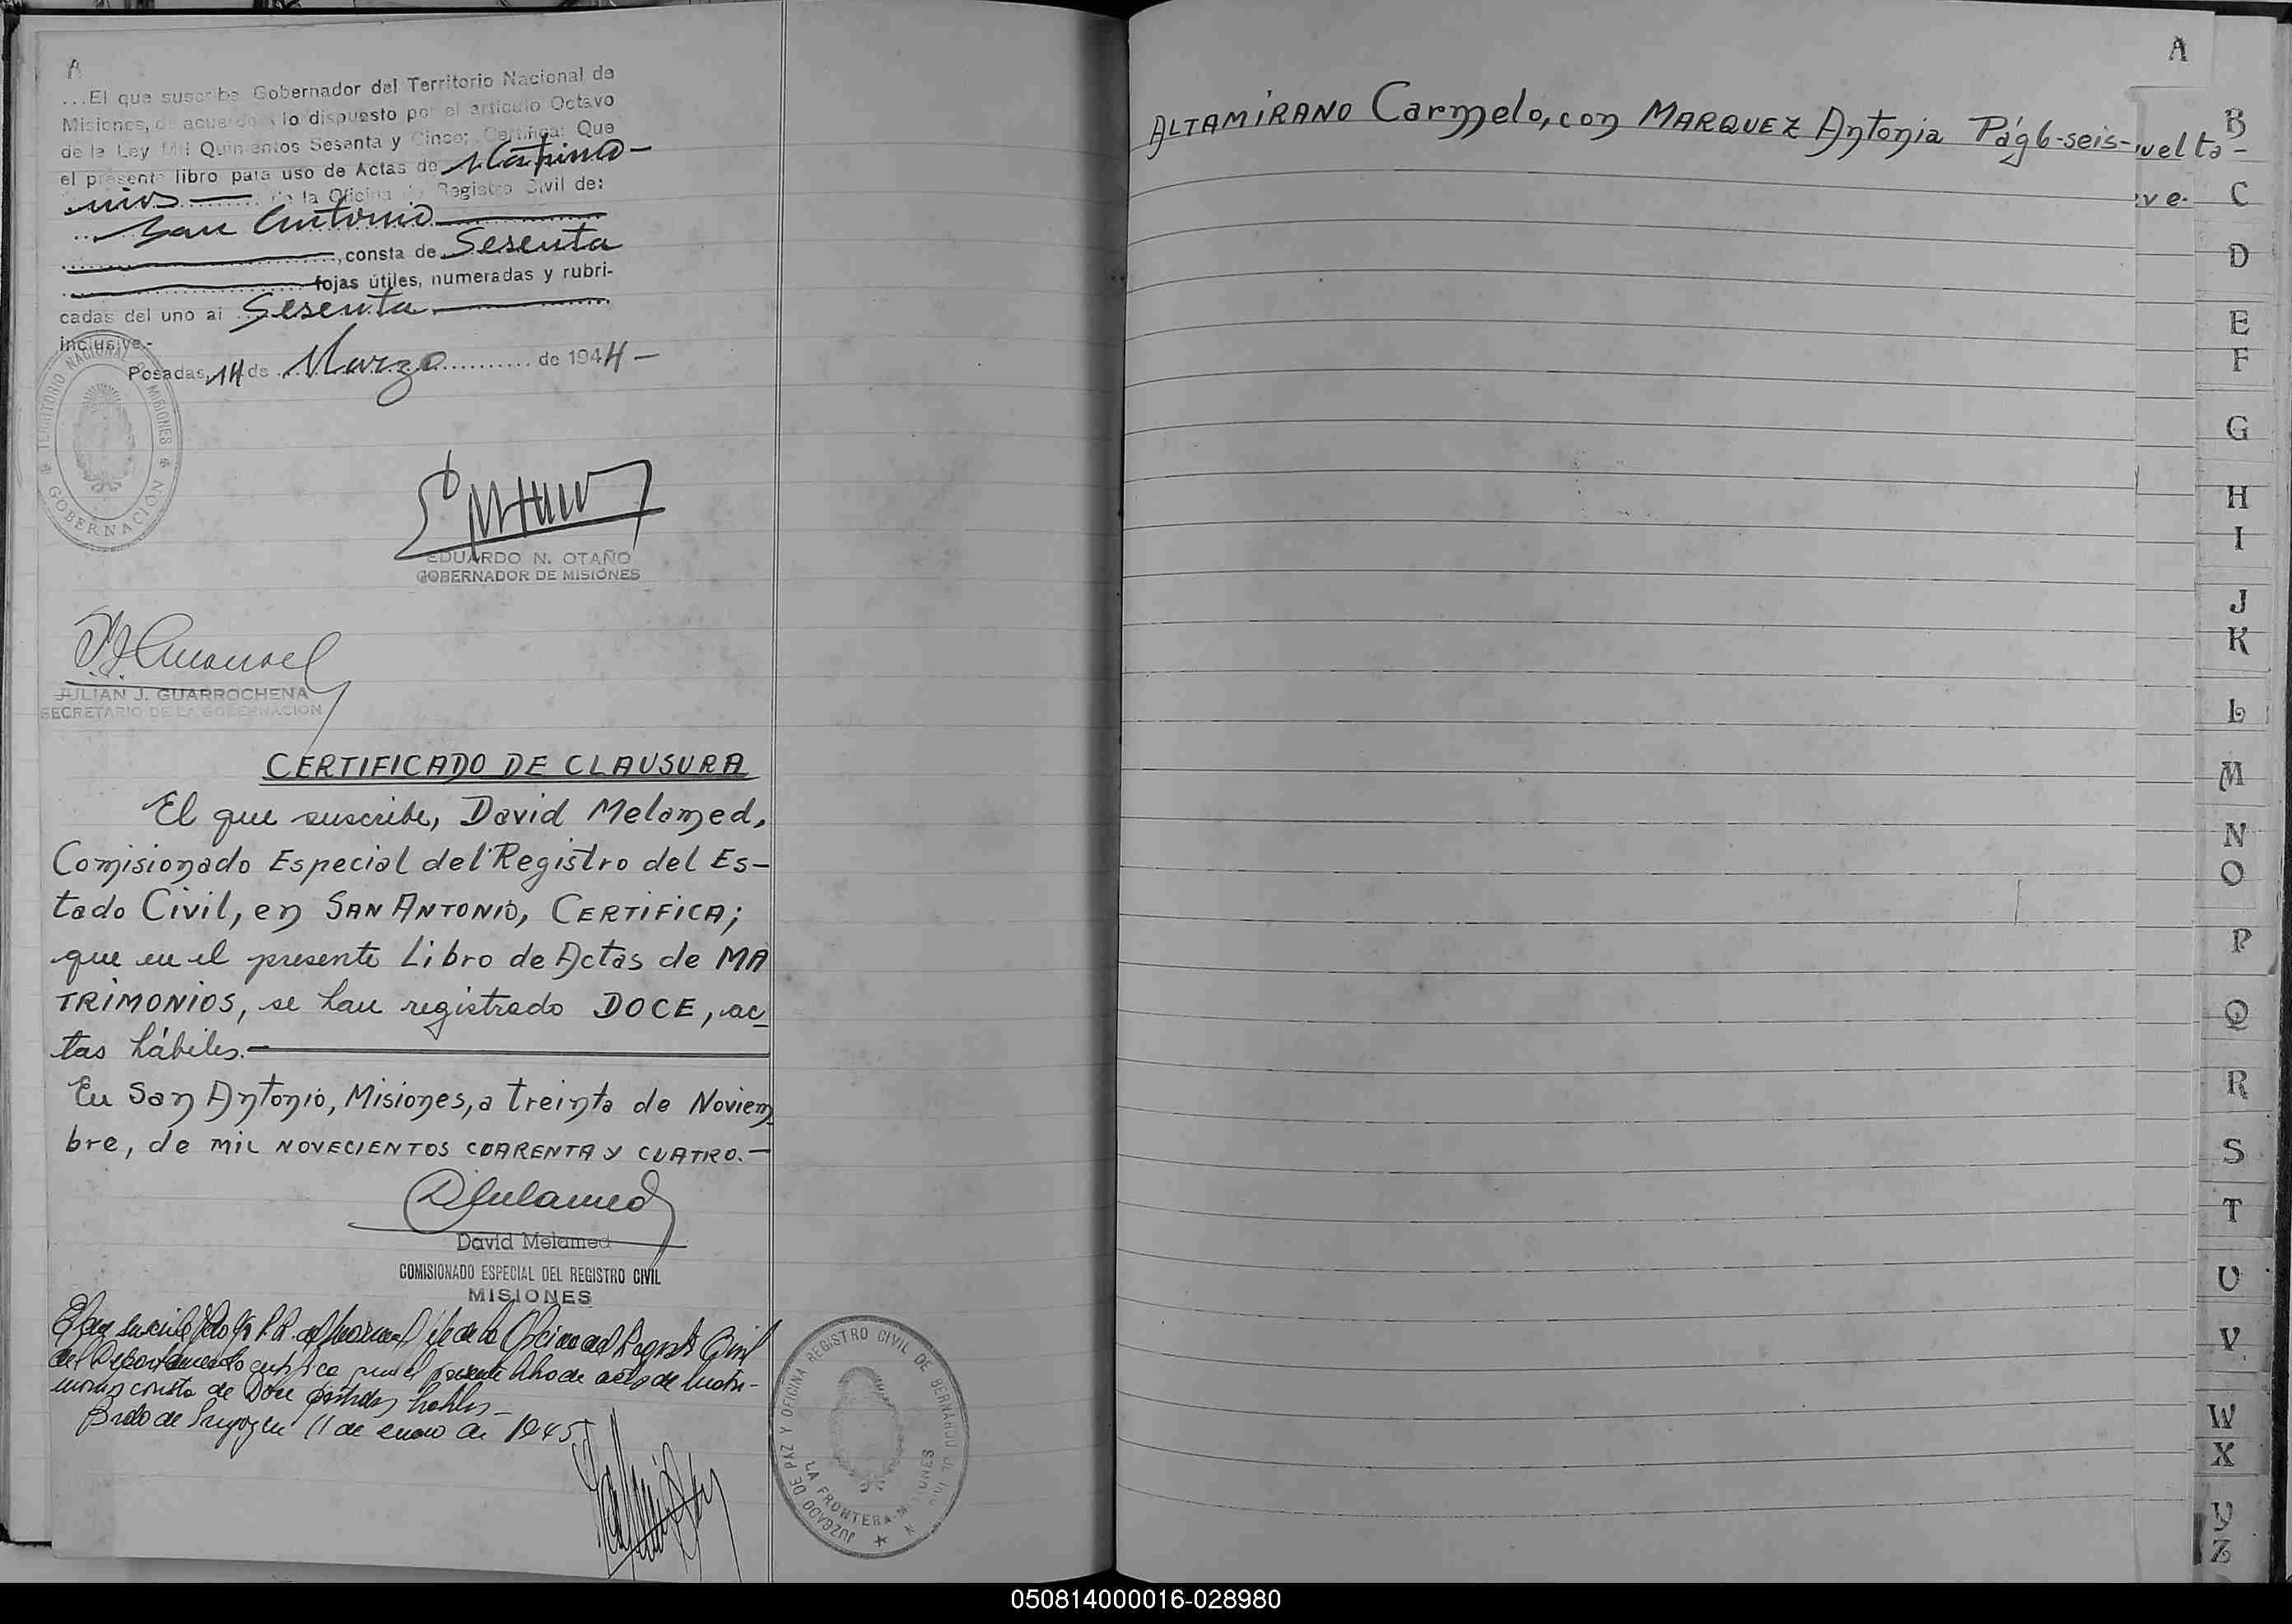 A
...El que suscribe Gobernador del Territorio Nacional de
Misiones, de acuerdo a lo dispuesto por el artículo Octavo
de la Ley Mil Quinientos Sesenta y Cinco; Certifica: Que
el presente libro para uso de Actas de Matrimo-
nios de la Oficina de Registro Civil de:
San Antonio
, consta de Sesenta
fojas útiles, numeradas y rubri-
cadas del uno al Sesenta
inclusive.-
Posadas, 14 de Marzo de 1944-
TERRITORIO NACIONAL DE MISIONES
GOBERNACIÓN
EDUARDO N. OTAÑO
GOBERNADOR DE MISIONES
JULIAN J. GUARROCHENA
SECRETARIO DE LA GOBERNACION
CERTIFICADO DE CLAUSURA
El que suscribe, David Melamed,
Comisionado Especial del Registro del Es-
tado Civil, en SAN ANTONIO, CERTIFICA;
que en el presente Libro de Actas de MA
TRIMONIOS, se han registrado DOCE, ac
tas hábiles.-
En San Antonio, Misiones, a treinta de Noviem
bre, de MIL NOVECIENTOS CUARENTA Y CUATRO.-
DMelamed
David Melamed
COMISIONADO ESPECIAL DEL REGISTRO CIVIL
MISIONES
El que suscribe Jefe de la Oficina del Registro Civil
del Departamento certifica que el presente libro de actas de matri-
monios consta de Doce partidas habiles-
Brdo de Irigoyen 11 de enero de 1945
JUZGADO DE PAZ Y OFICINA REGISTRO CIVIL DE BERNARDO DE IRIGOYEN
LA FRONTERA-MISIONES
A
ALTAMIRANO Carmelo, con MARQUEZ Antonia Pág 6-seis-vuelta-
ve.
B
C
D
E
F
G
H
I
J
K
L
M
N
O
P
Q
R
S
T
U
V
W
X
Y
Z
050814000016-028980